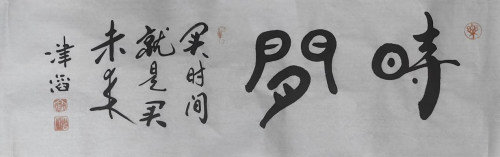 時間
买时间
就是买
未来
津滔